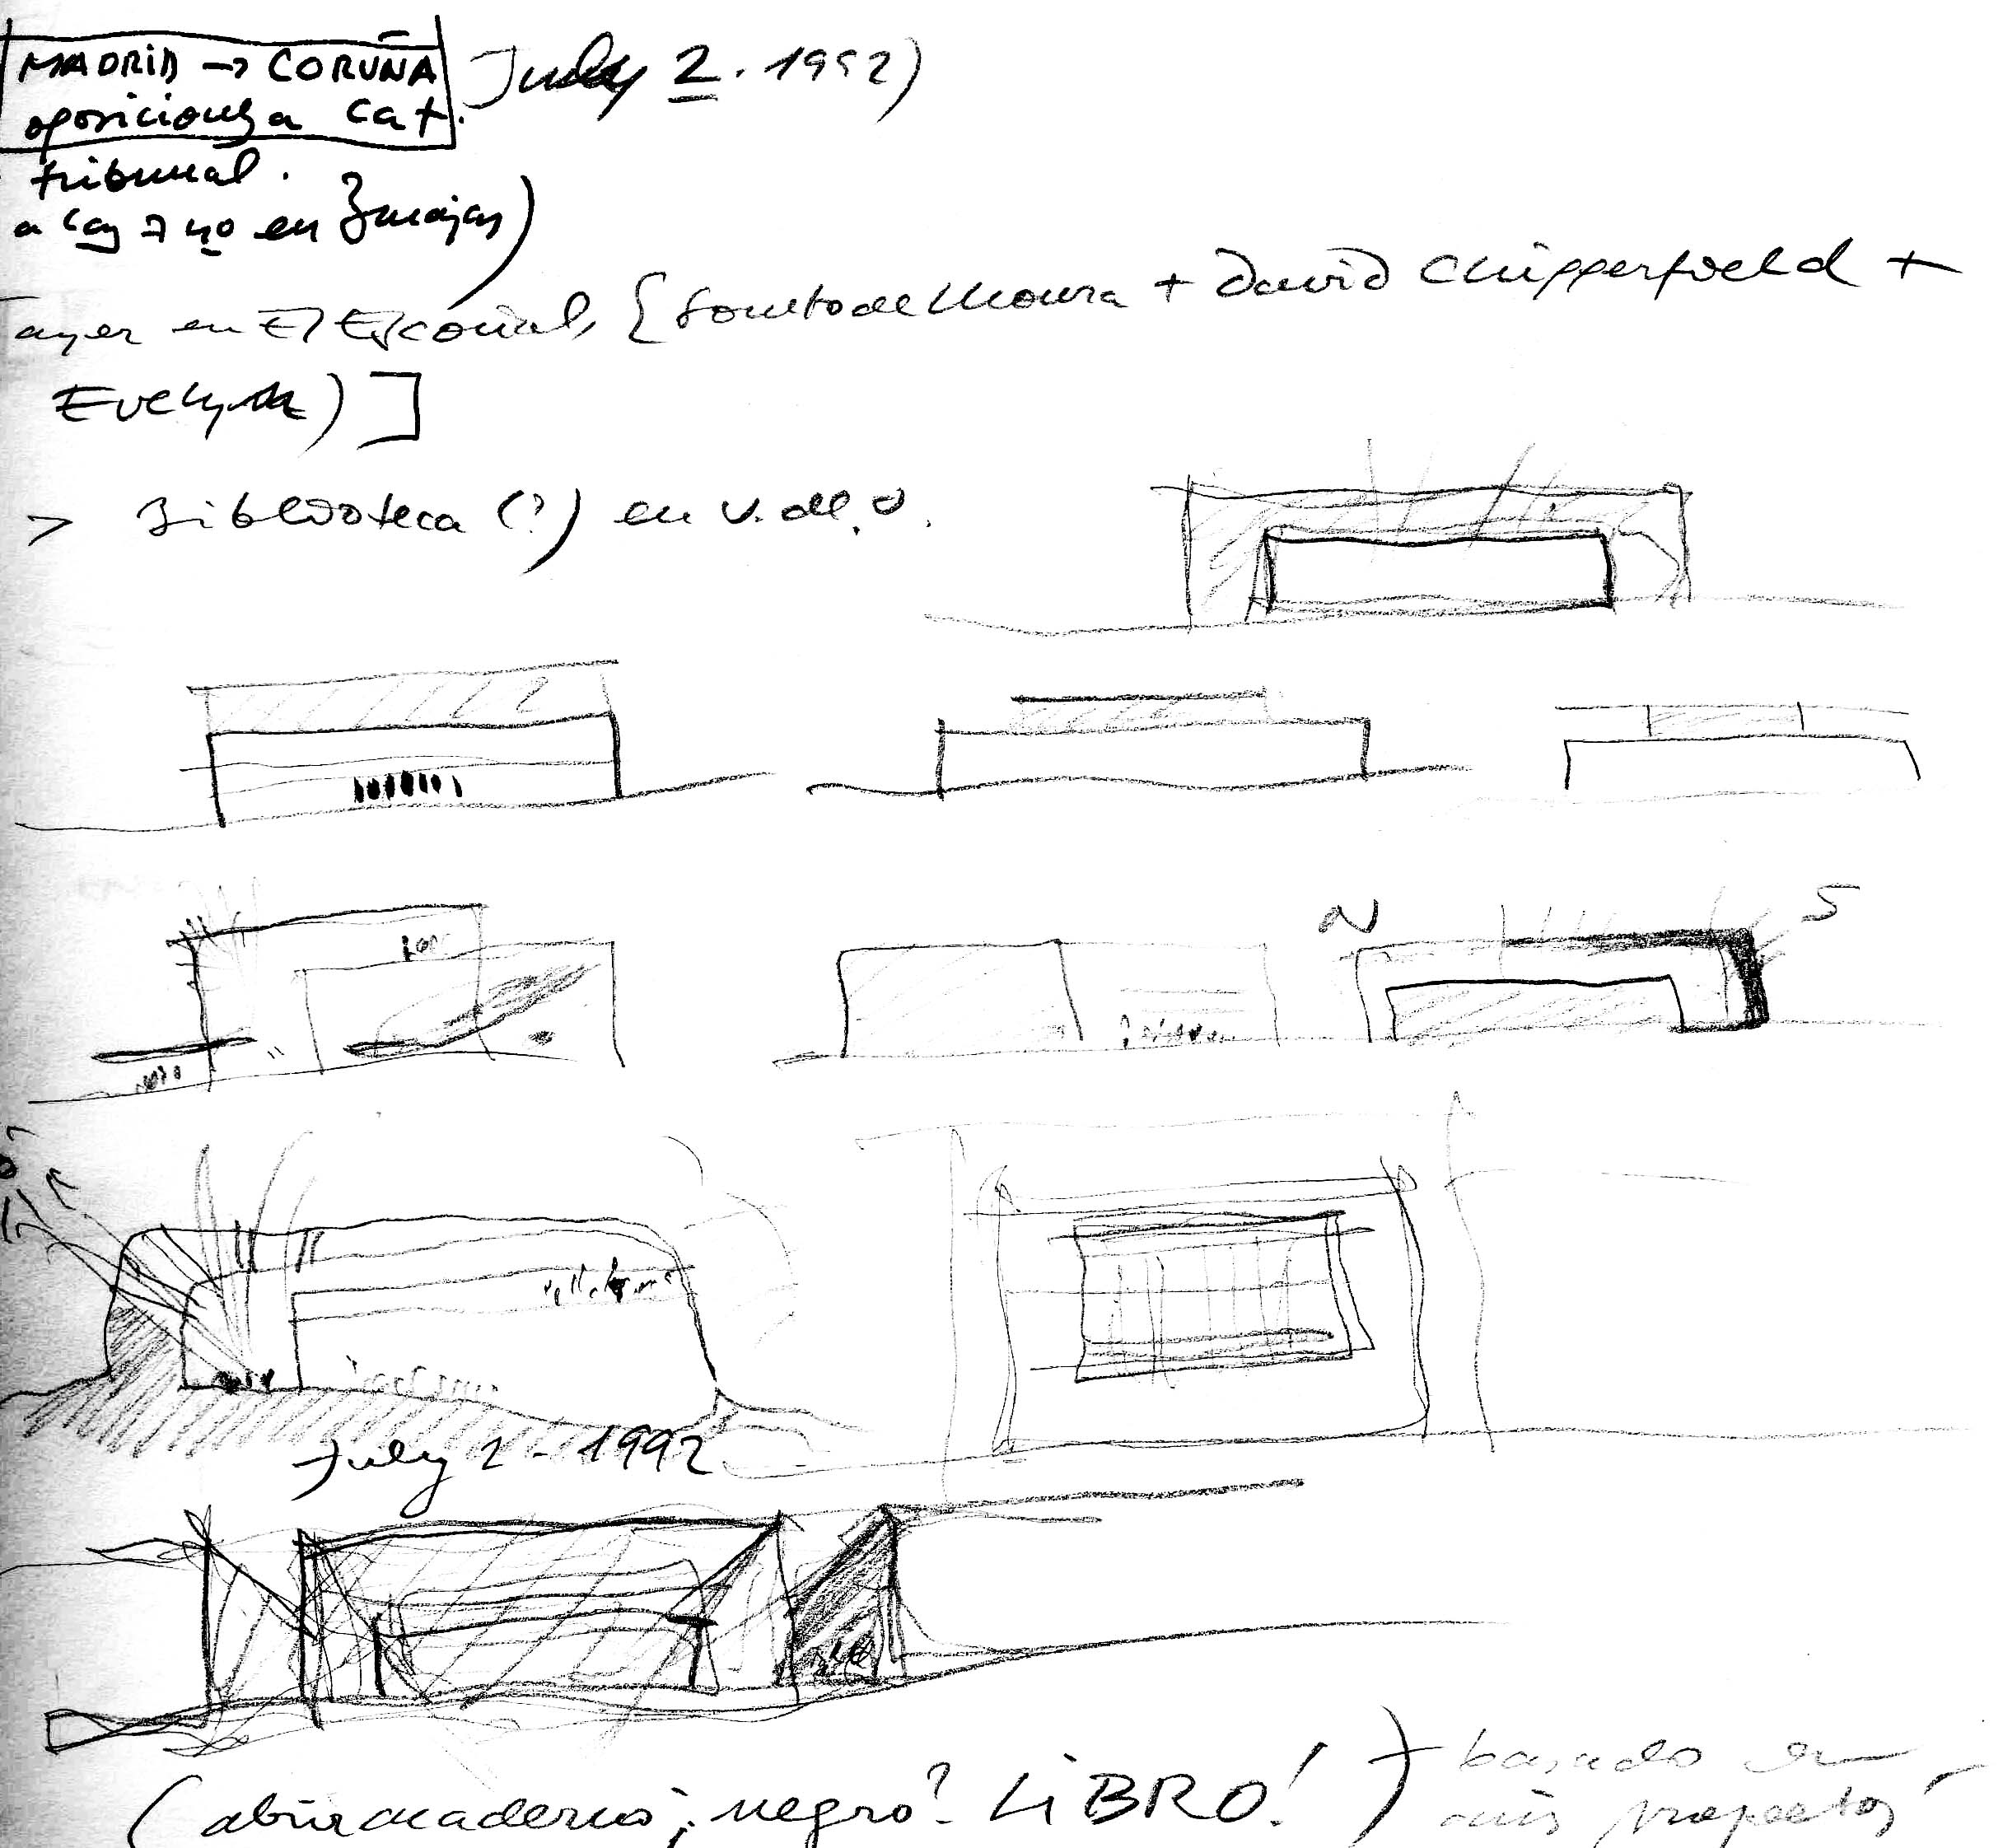 MADRID → CORUÑA July 2. 1992)
oposiciones a Cat.
tribunal.
a las 7 no en
ayer en El Escorial, {Souto de Moura + David Chipperfield +
Evelyn) ]
> Biblioteca (?) en U. de. V.
N S
July 2 - 1992
(abrir cuaderno; negro? LiBRO!) basado en
mis proyectos